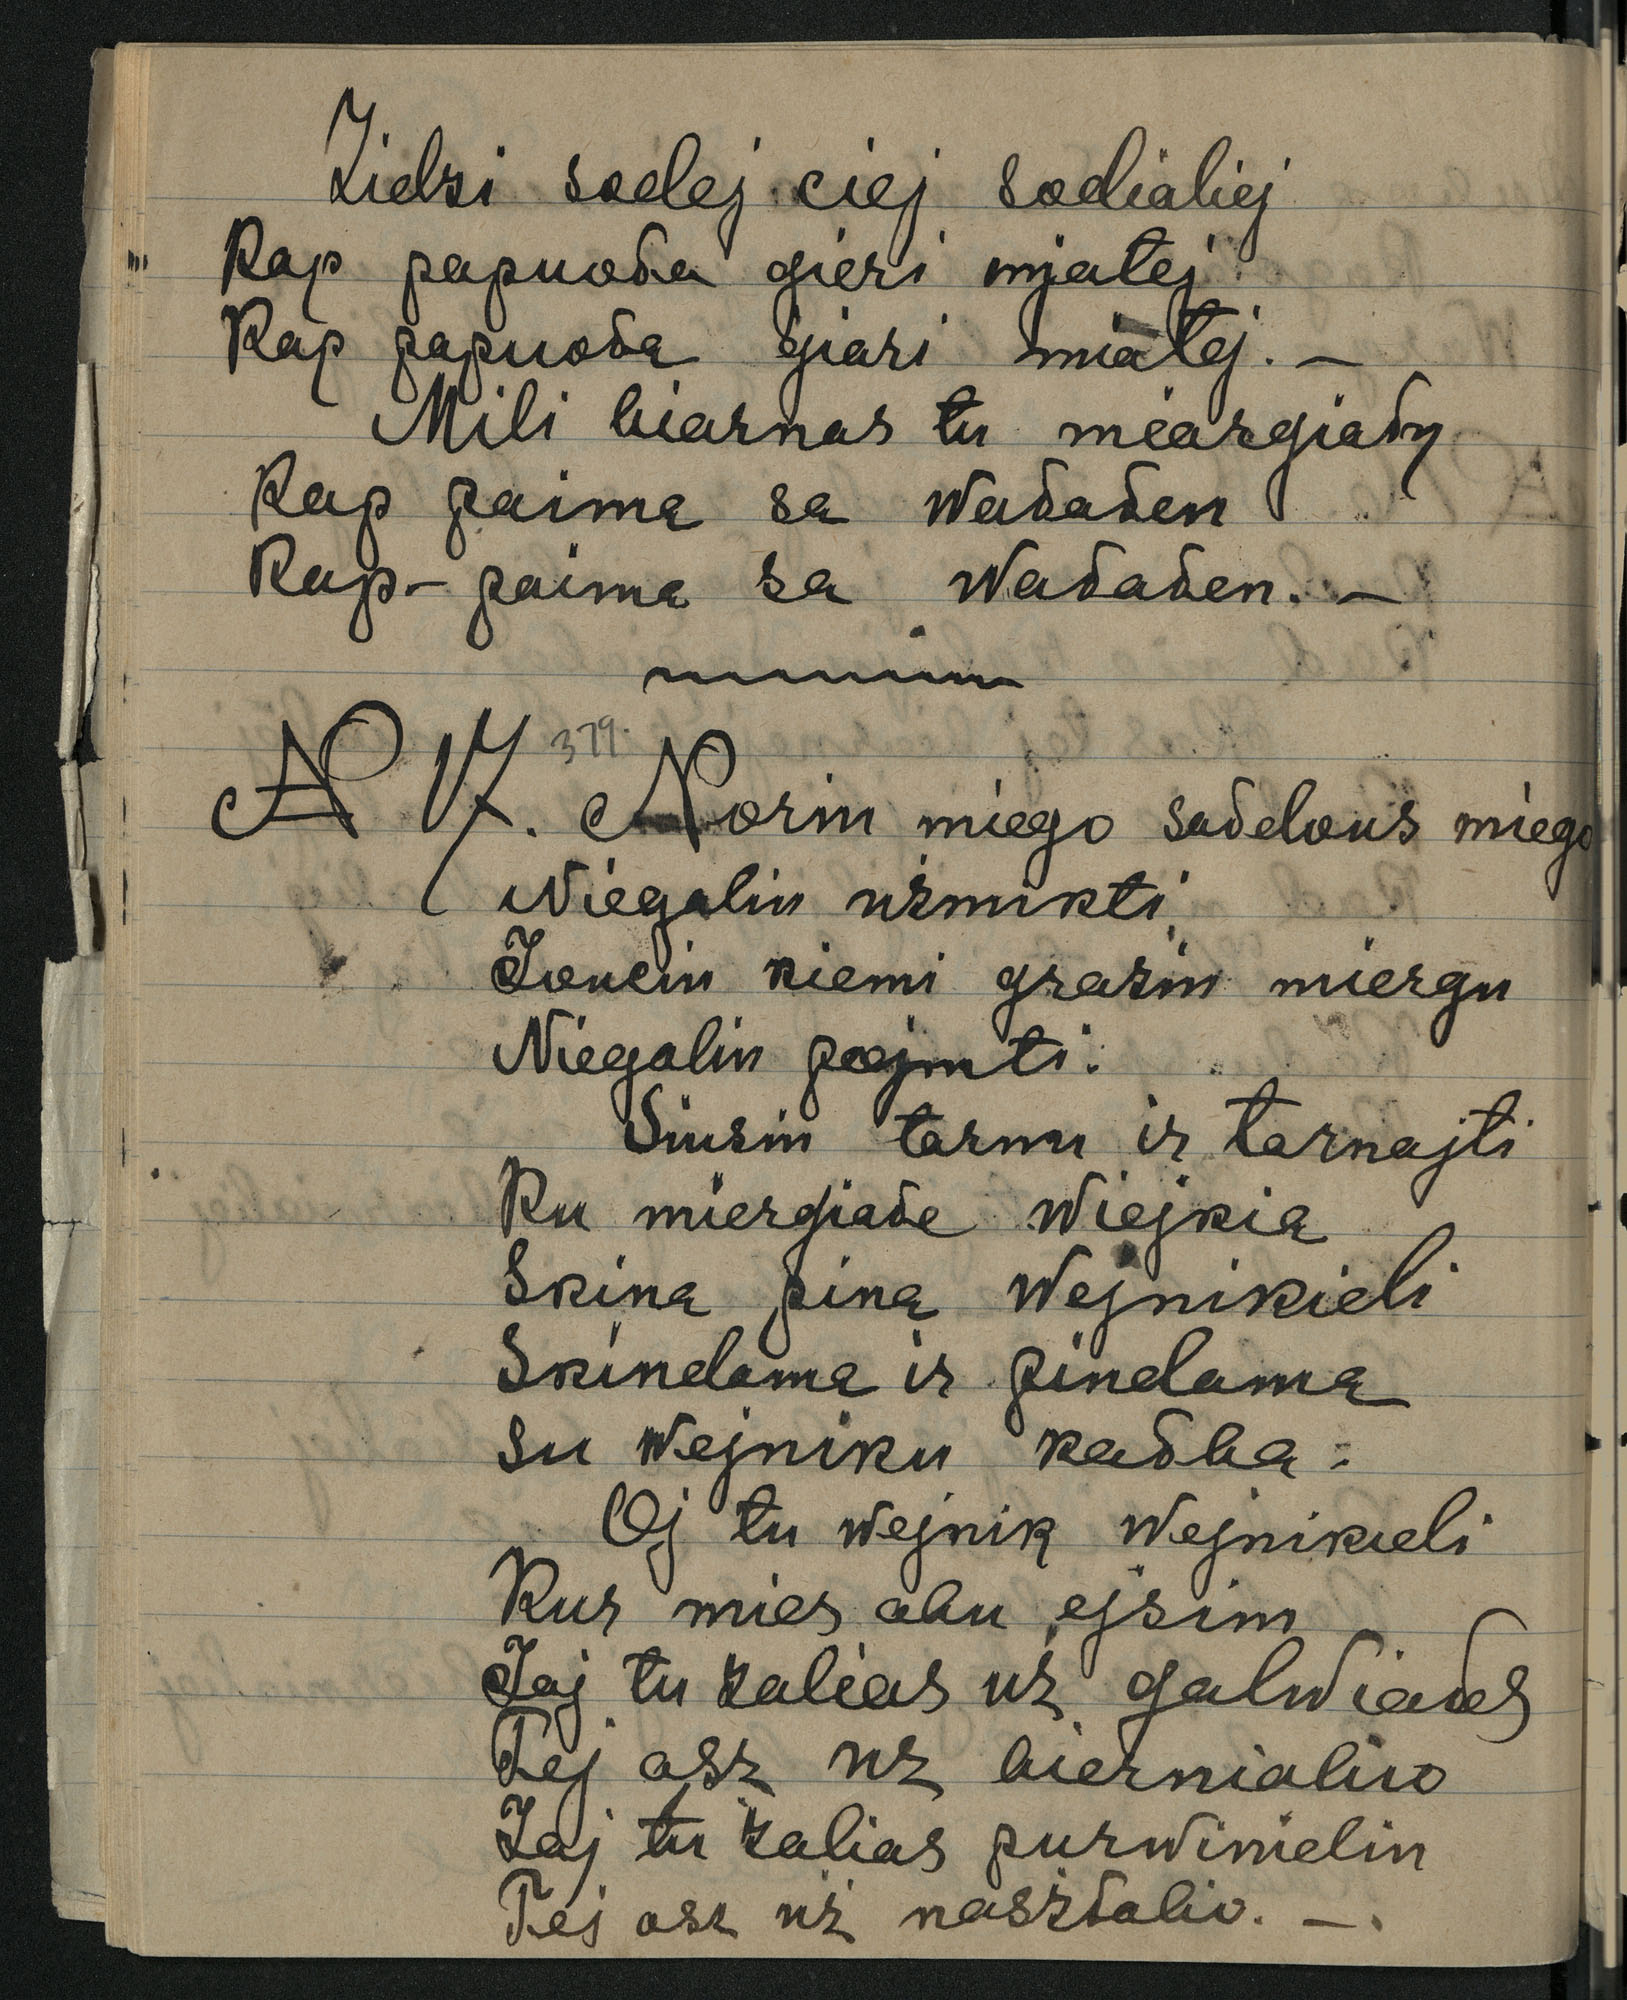 Żidzi sodej ciej sodialiej
Kap papuoda gieri mjatej
Kap papuoda giari miatej. —
Mili biarnas tu miargiady
Kap paimą sa wadaden
Kap- paimą sa wadaden. —
N 17. 379. Norin miego sadelous miego
Niegalin użmikti
Joucin kiemi grażin miergu
Niegalin pajmti.
Siusin tarnu ir tarnajti
Ku miergiade wiejkią
Skiną piną wejnikieli
Skindamą ir pindamą
su wejniku kadbą:
Oj tu wejnik wejnikieli
Kur mies abu ejsim
Jaj tu żalias uż galwiades
Tej asz uż biernialio
Jaj tu żalias purwinielin
Tej asz uż naszdalio. —.